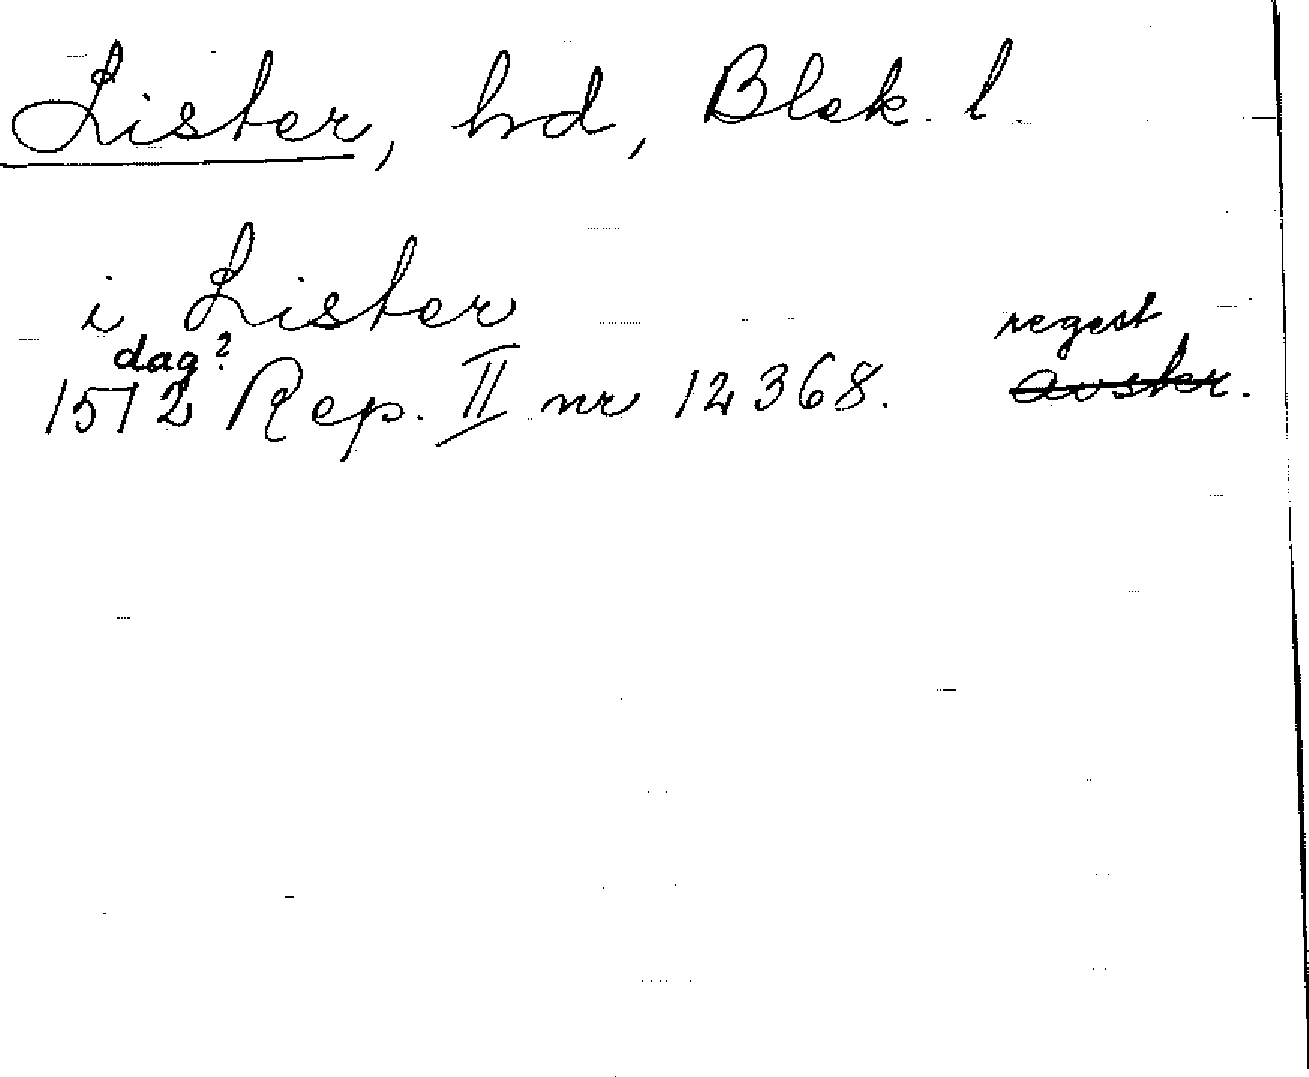 Lister, hd, Blek. l.
i Lister
regest
dag?
1512 Rep. II nr 12368. avskr.